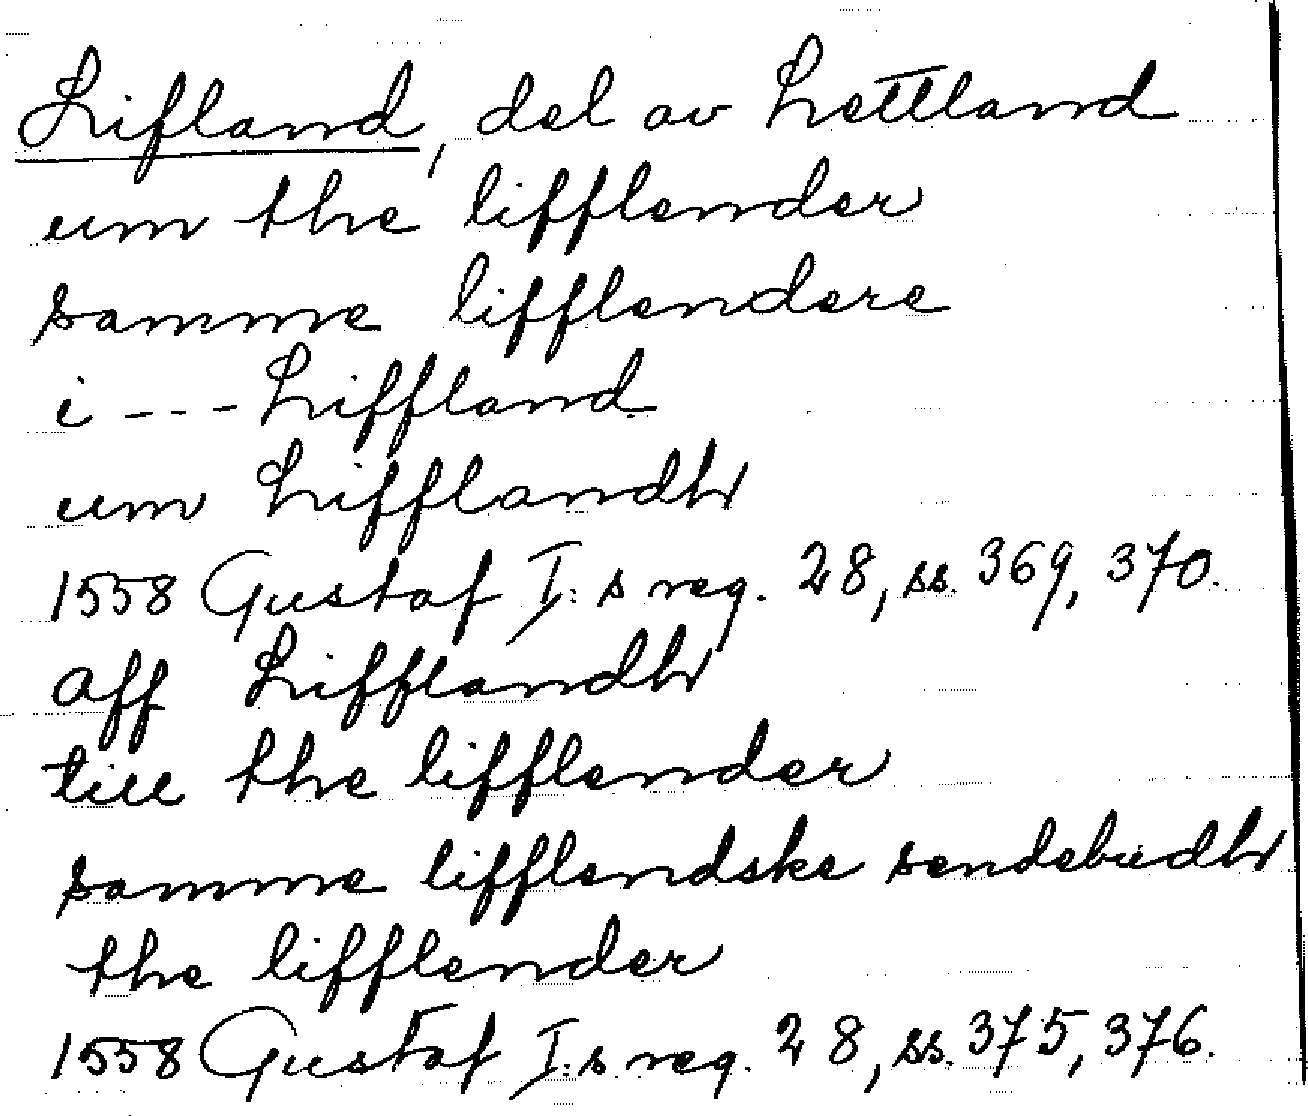 Lifland, del av Lettland
um the lifflender
samme lifflendere
i --- Liffland
um Lifflandh
1558 Gustaf I:s reg. 28, ss. 369, 370.
aff Lifflandh
till the lifflender
samme lifflendske sendebudh
the lifflender
1558 Gustaf I:s reg. 28, ss. 375, 376.